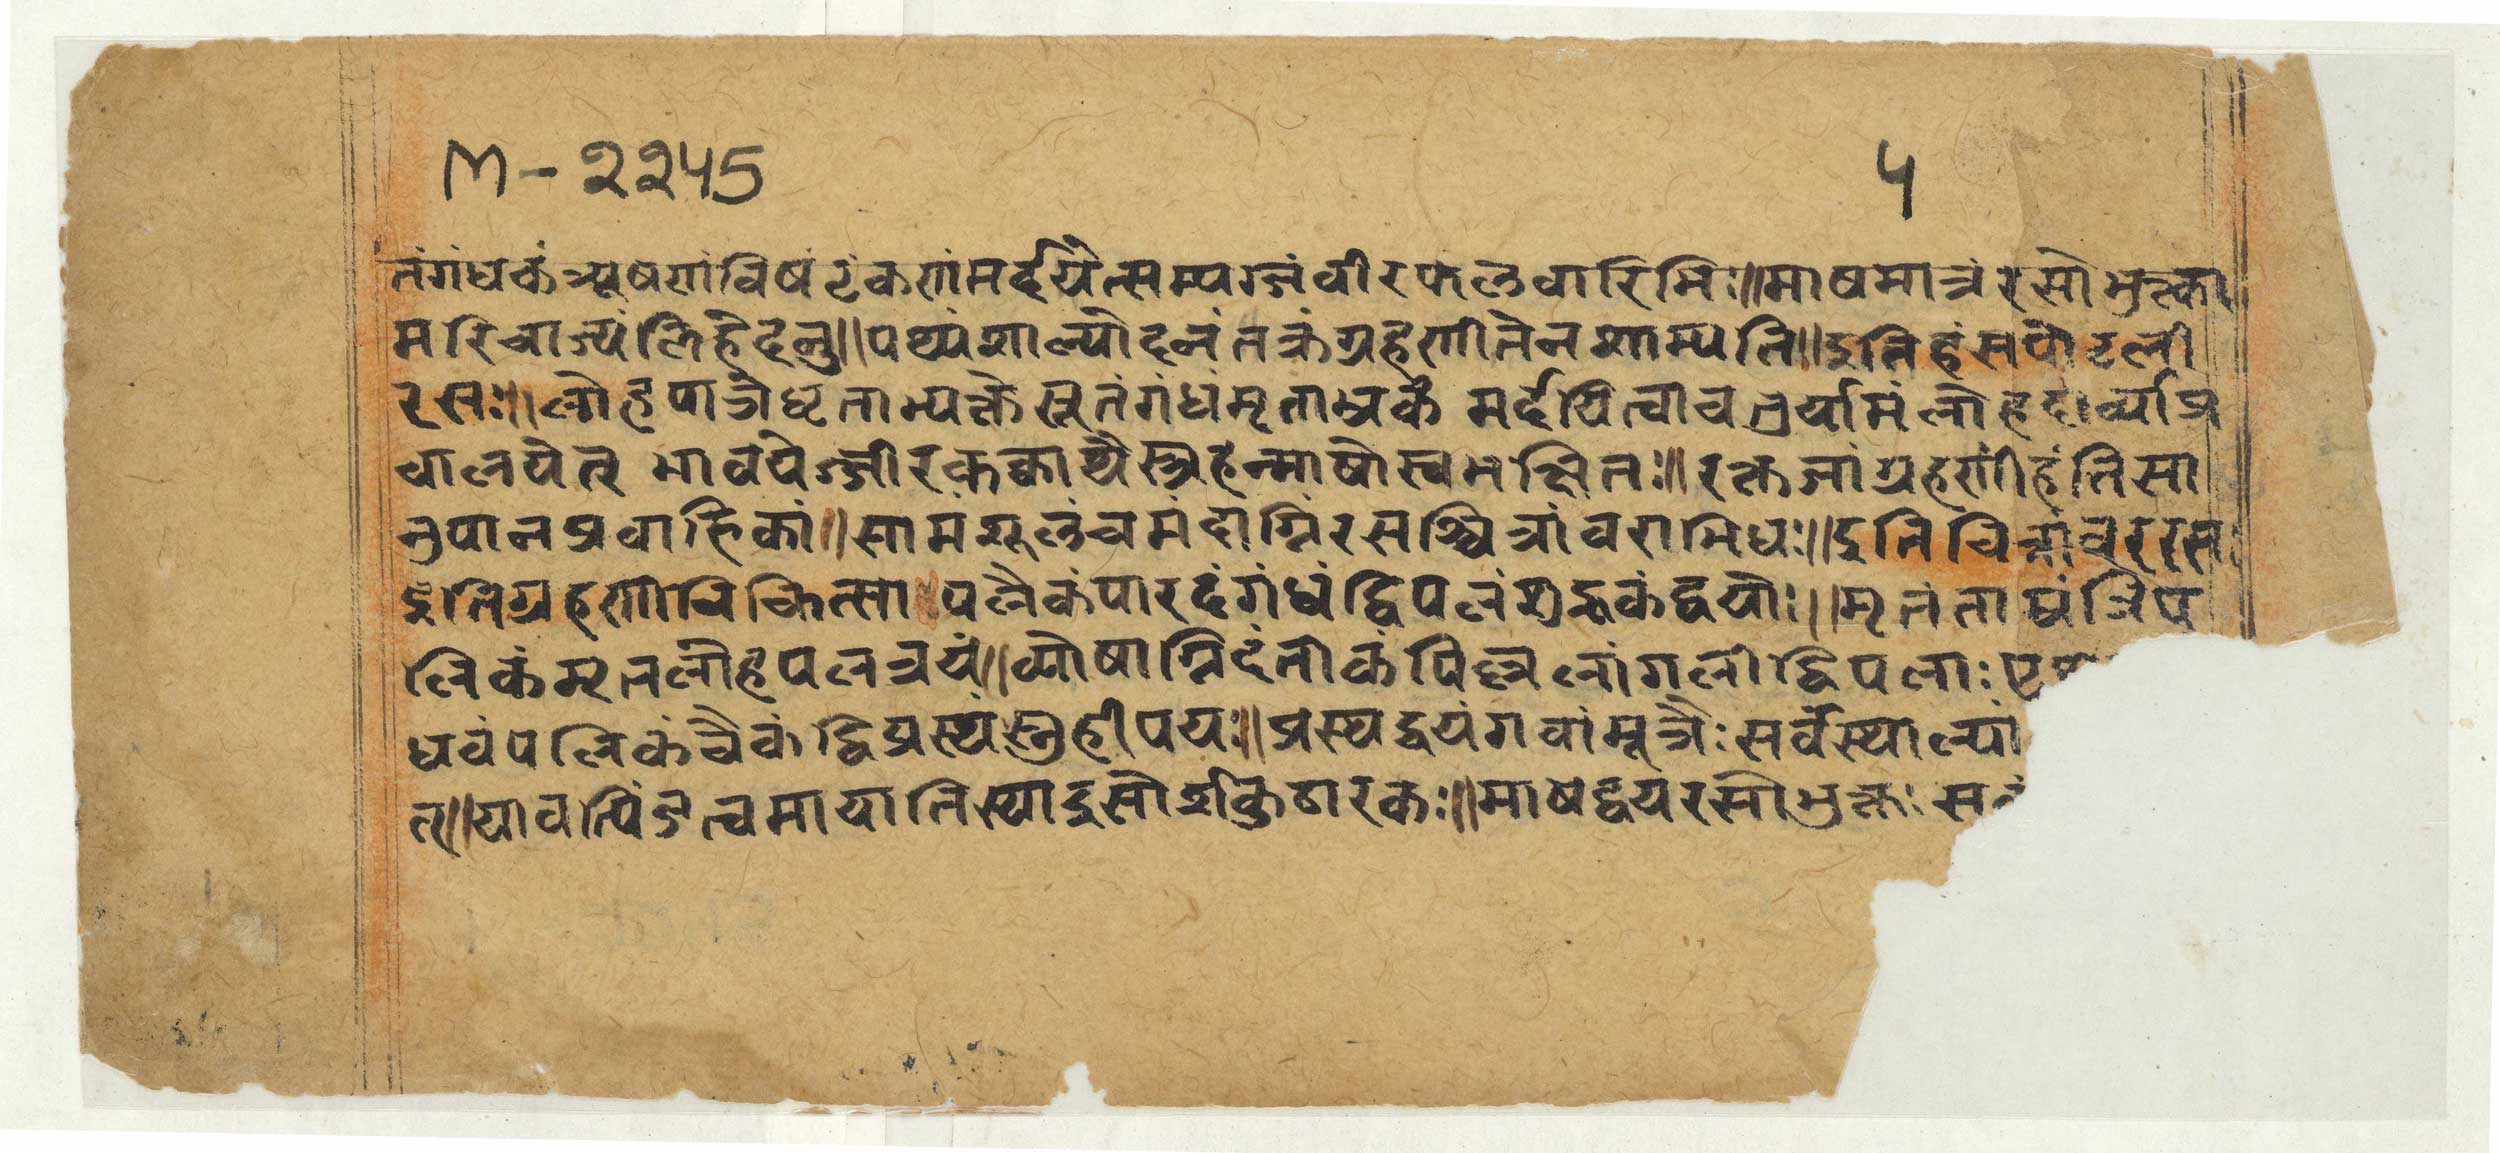 M-2245
५
तंगंधकंत्र्यूषणंविषंटंकणंमर्दयेत्सम्यग्जंवीरफलवारिभिः॥माषमात्रंरसोभुत्का
मरिचाज्यंलिहेदनु॥पथ्यंशाल्योदनंतक्रंग्रहणीतेनशाम्यति॥इतिहंसपोटली
रसः॥लोहपात्रेघृताभ्यक्तेसूतंगंधंमृताभ्रकं मर्दयित्वाचतुर्यामंलोहदार्व्याप्र
चालयेत् भावयेज्जीरकक्वाथैस्त्र्यहन्माषोस्यभक्षितः॥रक्तजांग्रहणींहंतिसा
नुपानप्रवाहिकां॥सामंशूलंचमंदाग्निंरसश्चित्रांवराभिधः॥इतिचित्रांवररसः
इतिग्रहणीचिकित्सा पलैकंपारदंगंधंद्विपलंशुद्धकंद्वयोः॥मृतंताम्रंत्रिप
लिकंमृतलोहपलत्रयं॥व्योषाग्निदंतीकंपिल्ललांगलीद्विपलाः
धवंपलिकंचैकंद्विप्रस्थंस्नुहीपयः॥प्रस्थद्वयंगवांमूत्रैःसर्वंस्थाल्यां
त्॥यावत्पिंडत्वमायातिस्यादसोर्शकुठारकः॥माषद्वयरसोभुक्तः